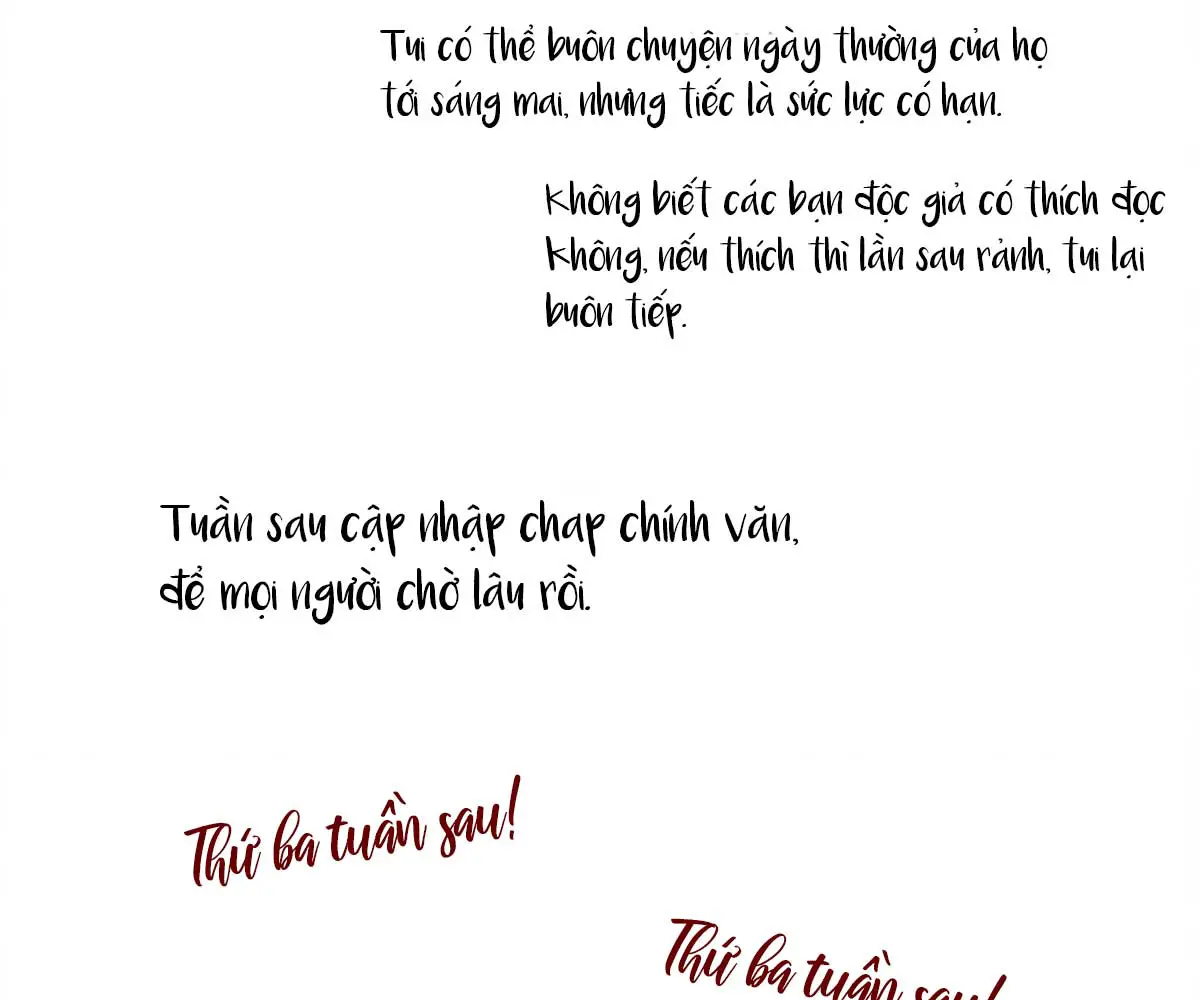 Tui có thể buôn chuyện ngày thường của họ
tới sáng mai, nhưng tiếc là sức lực có hạn.
Không biết các bạn độc giả có thích đọc
không, nếu thích thì lần sau rảnh, tui lại
buôn tiếp.
Tuần sau cập nhập chap chính văn,
để mọi người chờ lâu rồi.
Thứ ba tuần sau!
Thứ ba tuần sau!